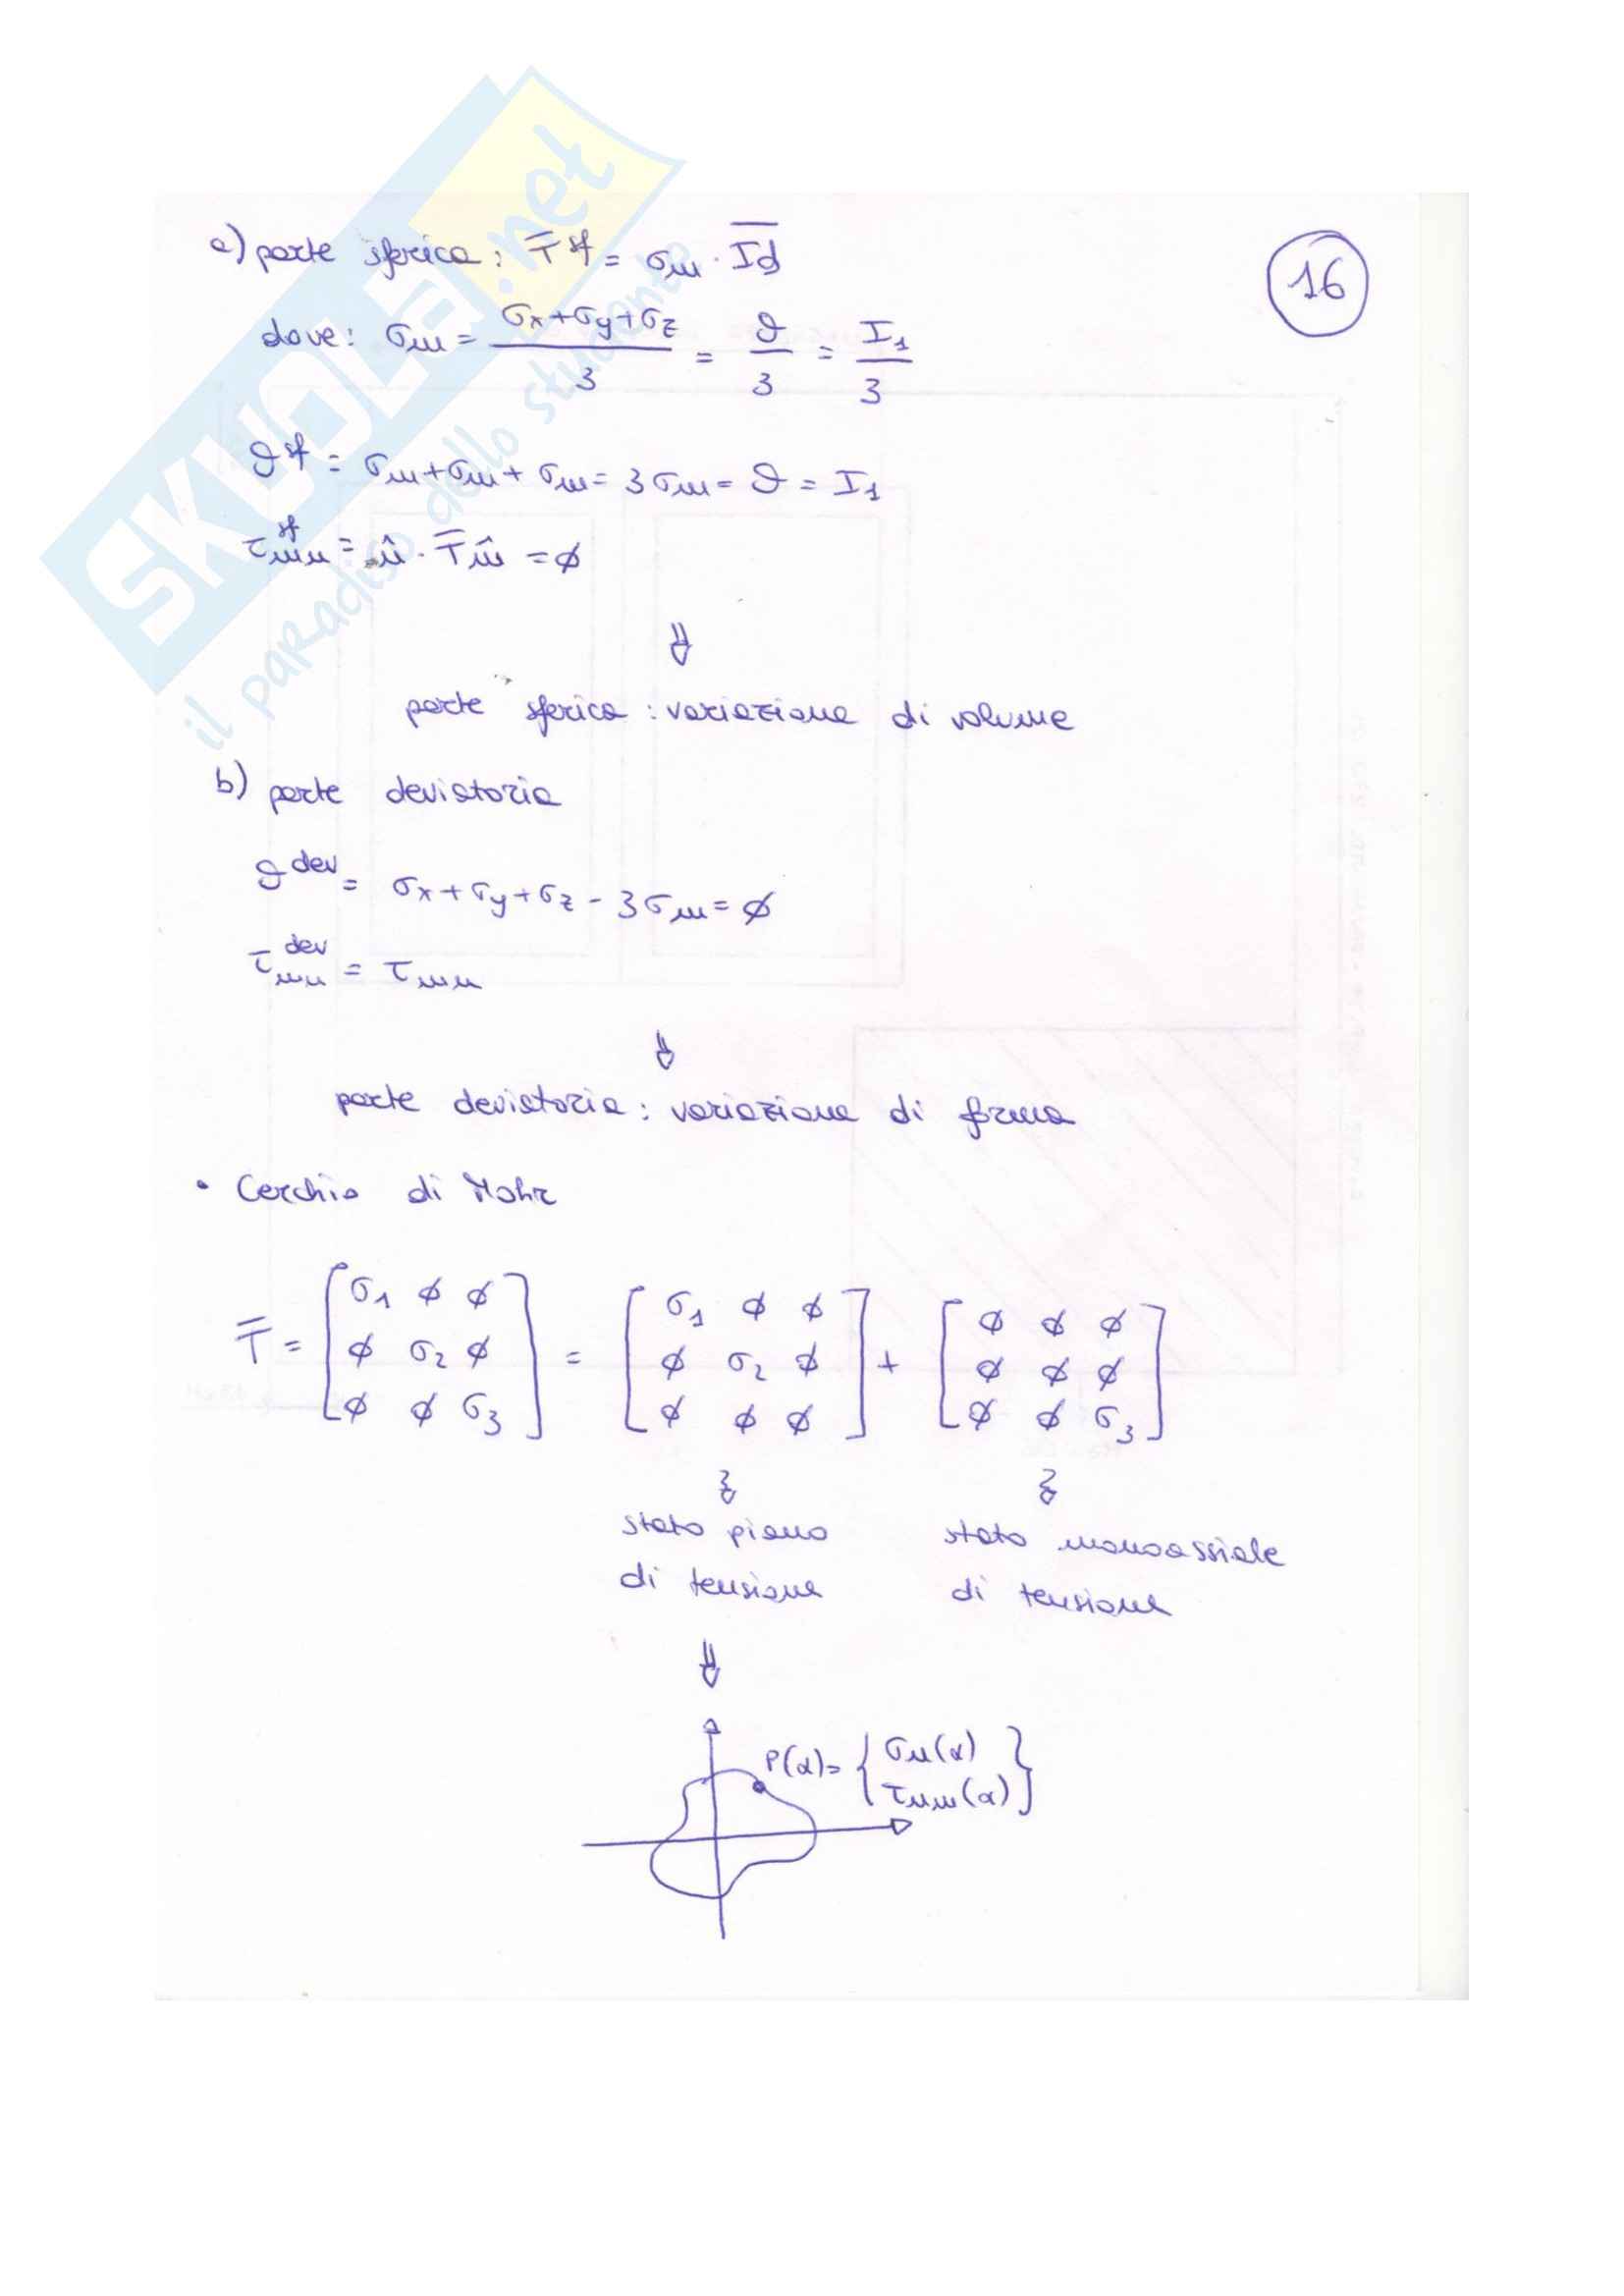 SKUOLA.net
il paradiso dello studente
16
a) parte sferica: T̿^sf = σm · I̅d̅
dove: σm = (σx+σy+σz)/3 = ϑ/3 = I1/3
ϑ^sf = σm+σm+σm = 3σm = ϑ = I1
τmn^sf = n̂ · T̿ m̂ = ∅
⇓
parte sferica : variazione di volume
b) parte deviatoria
ϑ^dev = σx+σy+σz - 3σm = ∅
τmn^dev = τmn
⇓
parte deviatoria : variazione di forma
• Cerchio di Mohr
T̿ = [σ1 ∅ ∅; ∅ σ2 ∅; ∅ ∅ σ3] = [σ1 ∅ ∅; ∅ σ2 ∅; ∅ ∅ ∅] + [∅ ∅ ∅; ∅ ∅ ∅; ∅ ∅ σ3]
stato piano
di tensione
stato monoassiale
di tensione
⇓
P(α) = {σn(α)
τnm(α)}